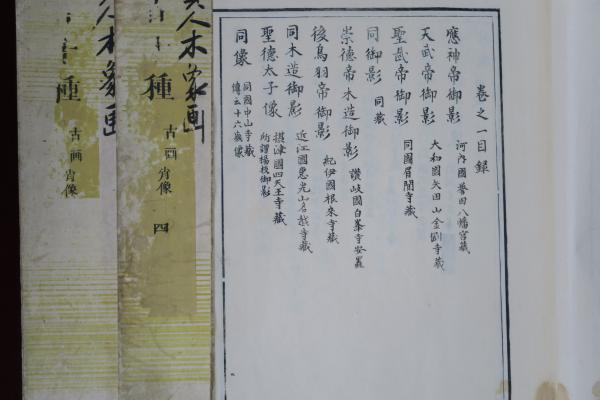 卷之一目録
應神帝御影
河内國誉田八幡宮藏
天武帝御影
大和國矢田山金剛寺藏
聖武帝御影
同國眉間寺藏
同御影
同藏
崇徳帝木造御影
讃岐國白峯寺安置
後鳥羽帝御影
紀伊國根來寺藏
同木造御影
近江國惠光山名越寺藏
聖德太子像
摂津國四天王寺藏
所謂楊枝御影
同像
同國中山寺藏
傳云十六歳像
人木象画
種
古画肖像
四
人木象画
種
古画肖像